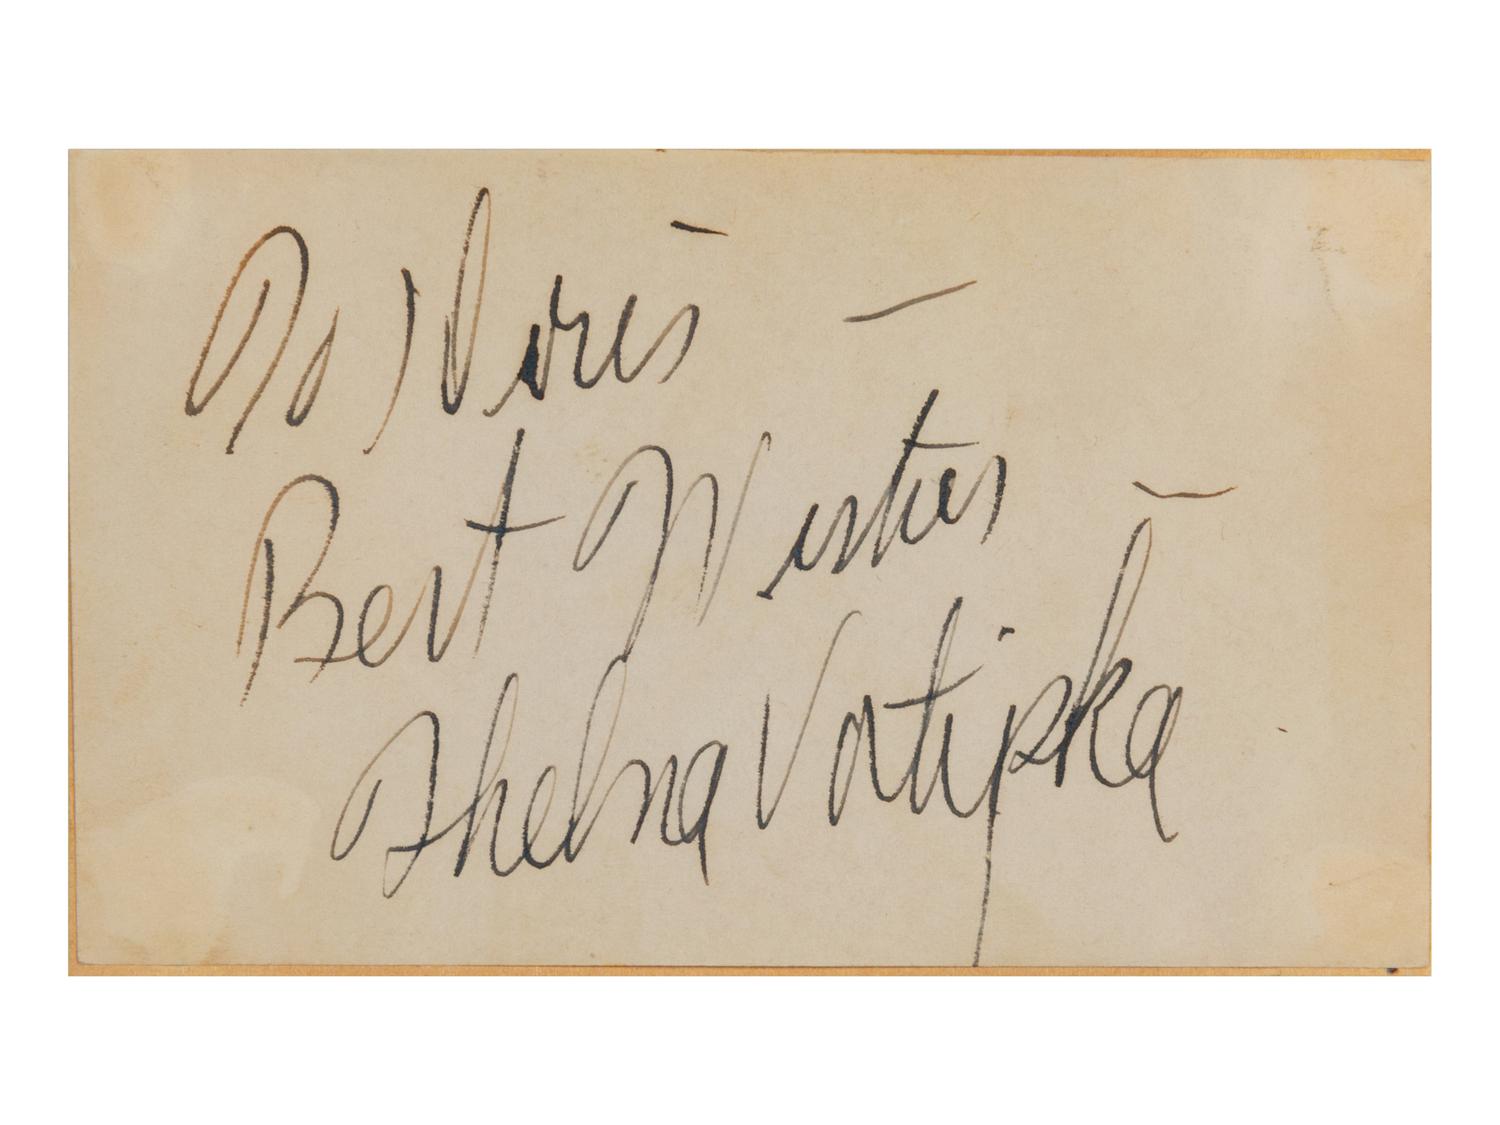 To Doris —
Best Wishes —
Thelma Votipka